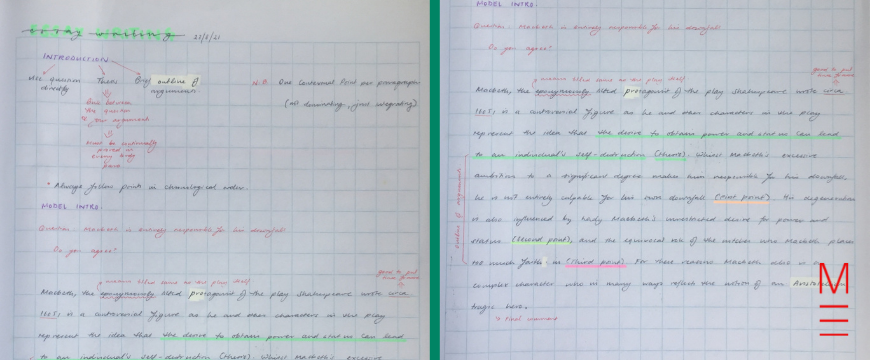 ESSAY WRITING
INTRODUCTION
Use question directly
Thesis
Brief outline of argument
N.B. One contextual point per paragraph
(not dominating, just integrating)
One between the question & your argument
Must be continually proved in every body para
* Always follow points in chronological order.
MODEL INTRO:
Question: Macbeth is entirely responsible for his downfall
Do you agree?
good to put time frames
means titled same as the play itself
Macbeth, the eponymously titled protagonist of the play Shakespeare wrote circa
1605, is a controversial figure as he and other characters in the play
represent the idea that the desire to obtain power and status can lead
to an individual's self-destruction (thesis). Whilst Macbeth's excessive
MODEL INTRO:
Question: Macbeth is entirely responsible for his downfall
Do you agree?
good to put time frames
means titled same as the play itself
Macbeth, the eponymously titled protagonist of the play Shakespeare wrote circa
1605, is a controversial figure as he and other characters in the play
represent the idea that the desire to obtain power and status can lead
to an individual's self-destruction (thesis). Whilst Macbeth's excessive
ambition to a significant degree makes him responsible for his downfall,
he is not entirely culpable for his own downfall (First point). His degeneration
is also influenced by Lady Macbeth's unrestrained desire for power and
status (Second point), and the equivocal role of the witches who Macbeth places
too much faith in (Third point). For these reasons Macbeth acts as a
complex character who in many ways reflects the notion of an Aristotelian
tragic hero.
> Final comment
outline of argument
M